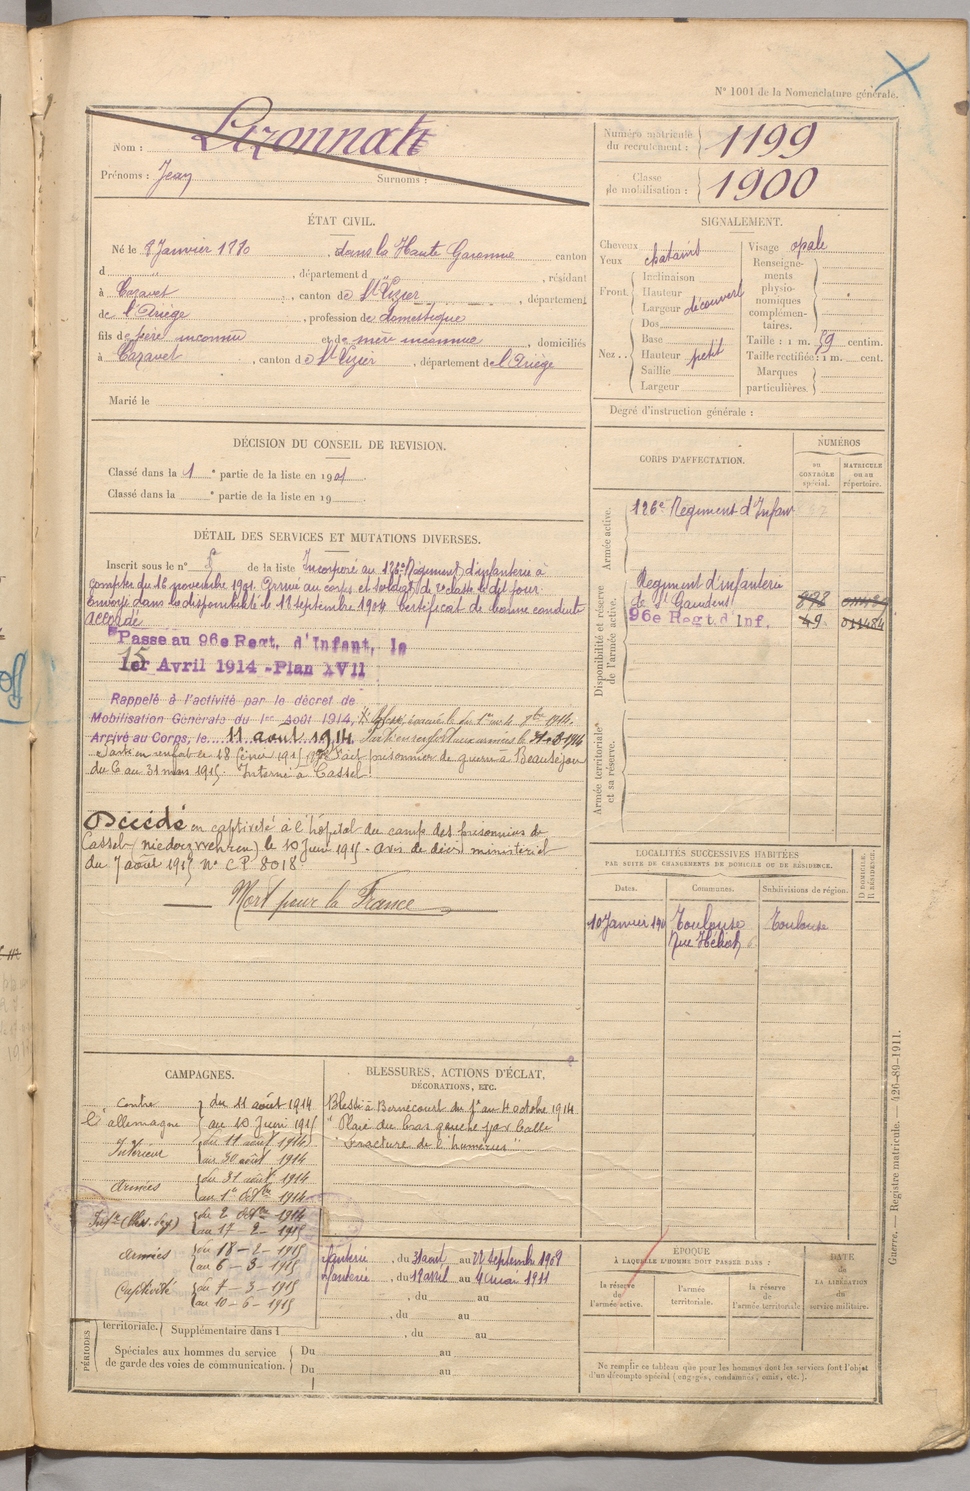 N° 1001 de la Nomenclature générale.
Nom : Lizonnak
Prénoms : Jean Surnoms :
Numéro matricule du recrutement : 1199
Classe de mobilisation : 1900
ÉTAT CIVIL.
Né le 8 Janvier 1880, dans la Haute Garonne canton
d , département d , résidant
à Cazavet, canton de St Lizier, département
de l'Ariège, profession de domestique
fils de père inconnu et de mère inconnue, domiciliés
à Cazavet, canton de St Lizier, département de l'Ariège
Marié le
SIGNALEMENT.
Cheveux
Yeux chatains
Front. Inclinaison
Hauteur
Largeur découvert
Nez.. Dos
Base
Hauteur petit
Saillie
Largeur
Visage opale
Renseignements physionomiques complémentaires.
Taille : 1 m. 59 centim.
Taille rectifiée : 1 m. cent.
Marques particulières.
Degré d'instruction générale :
DÉCISION DU CONSEIL DE REVISION.
Classé dans la 1 e partie de la liste en 1901.
Classé dans la e partie de la liste en 19
DÉTAIL DES SERVICES ET MUTATIONS DIVERSES.
Inscrit sous le n° de la liste Incorporé au 126e Régiment d'infanterie à
compter du 16 novembre 1901. Arrivé au corps et soldat de 2e classe le dit jour
envoyé dans la disponibilité le 18 septembre 1904 Certificat de bonne conduite
accordé
Passe au 96e Regt. d'Infant. le
1er Avril 1914 - Plan XVII
15
Rappelé à l'activité par le décret de
Mobilisation Générale du 1er Août 1914,
Arrivé au Corps, le 11 août 1914.
Parti en renfort aux armées le 31-8-1914
Parti en renfort le 18 février 1915. Fait prisonnier de guerre à Beauséjour
du 6 au 31 mars 1915. Interné à Cassel.
Décédé en captivité à l'hôpital du camp des prisonniers de
Cassel (Niederzwehren) le 10 Juin 1915. Avis de décès ministériel
du 7 août 1915 N° CP 8018
Mort pour la France
CORPS D'AFFECTATION.
NUMÉROS
au CONTRÔLE spécial.
MATRICULE ou au répertoire.
Armée active.
126e Régiment d'Infant
Disponibilité et réserve de l'armée active.
Régiment d'infanterie
de St Gaudens 898
96e Regt. d'Inf. 49 011484
Armée territoriale et sa réserve.
LOCALITÉS SUCCESSIVES HABITÉES
PAR SUITE DE CHANGEMENTS DE DOMICILE OU DE RÉSIDENCE.
Dates. Communes. Subdivisions de région. D DOMICILE. R RÉSIDENCE.
10 Janvier 190 Toulouse Toulouse
Rue Héliot 6
CAMPAGNES.
Contre l'allemagne du 11 août 1914
au 10 Juin 1915
Intérieur du 11 août 1914
au 30 août 1914
Armées du 31 août 1914
au 1er Octbre 1914
du 2 Octbre 1914
au 17-2-1915
Armées du 18-2-1915
au 6-3-1915
Captivité du 7-3-1915
au 10-6-1915
BLESSURES, ACTIONS D'ÉCLAT,
DÉCORATIONS, ETC.
Blessé à Bernécourt du 1er au 4 octobre 1914
"Plaie du bras gauche par balle"
"Fracture de l'humérus"
PÉRIODES
nfanterie, du 31 août au 22 Septembre 1908
nfanterie, du 18 avril au 4 mai 1911
, du au
, du au
territoriale. Supplémentaire dans l , du au
Spéciales aux hommes du service de garde des voies de communication. Du au
Du au
ÉPOQUE
À LAQUELLE L'HOMME DOIT PASSER DANS :
la réserve de l'armée active.
l'armée territoriale.
la réserve de l'armée territoriale.
DATE de LA LIBÉRATION du service militaire.
Ne remplir ce tableau que pour les hommes dont les services font l'objet
d'un décompte spécial (engagés, condamnés, omis, etc.).
Guerre. — Registre matricule. — 426-89-1911.